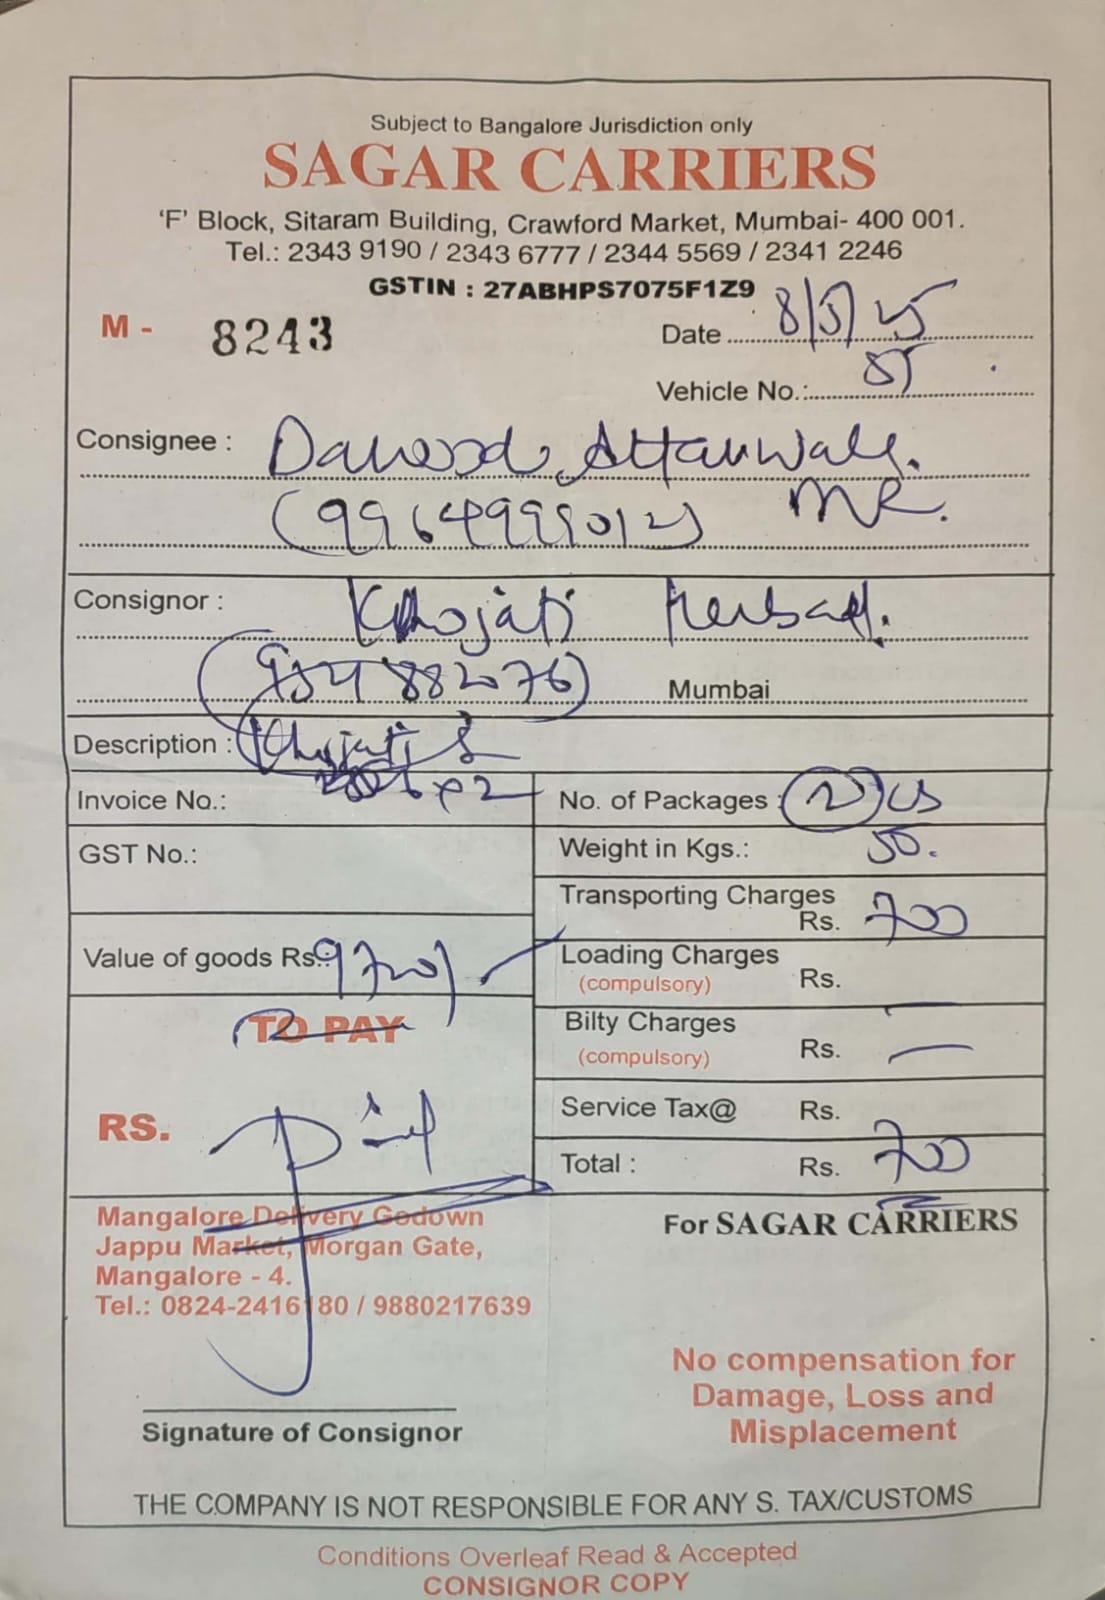 Subject to Bangalore Jurisdiction only
SAGAR CARRIERS
'F' Block, Sitaram Building, Crawford Market, Mumbai- 400 001.
Tel.: 2343 9190 / 2343 6777 / 2344 5569 / 2341 2246
GSTIN : 27ABHPS7075F1Z9
M - 8243
Date 8/5/25
Vehicle No.:
Consignee : Dawood Attarwala.
(9964999012) MR.
Consignor : Khojati Herbal.
Mumbai
Description : Khojati
Invoice No.: No. of Packages : 2
GST No.: Weight in Kgs.: 50.
Transporting Charges Rs. 700
Value of goods Rs.: 9720/
Loading Charges (compulsory) Rs.
TO PAY
Bilty Charges (compulsory) Rs. —
RS. Paid
Service Tax@ Rs.
Total : Rs. 700
Mangalore Delivery Godown
Jappu Market, Morgan Gate,
Mangalore - 4.
Tel.: 0824-2416180 / 9880217639
For SAGAR CARRIERS
No compensation for
Damage, Loss and
Misplacement
Signature of Consignor
THE COMPANY IS NOT RESPONSIBLE FOR ANY S. TAX/CUSTOMS
Conditions Overleaf Read & Accepted
CONSIGNOR COPY